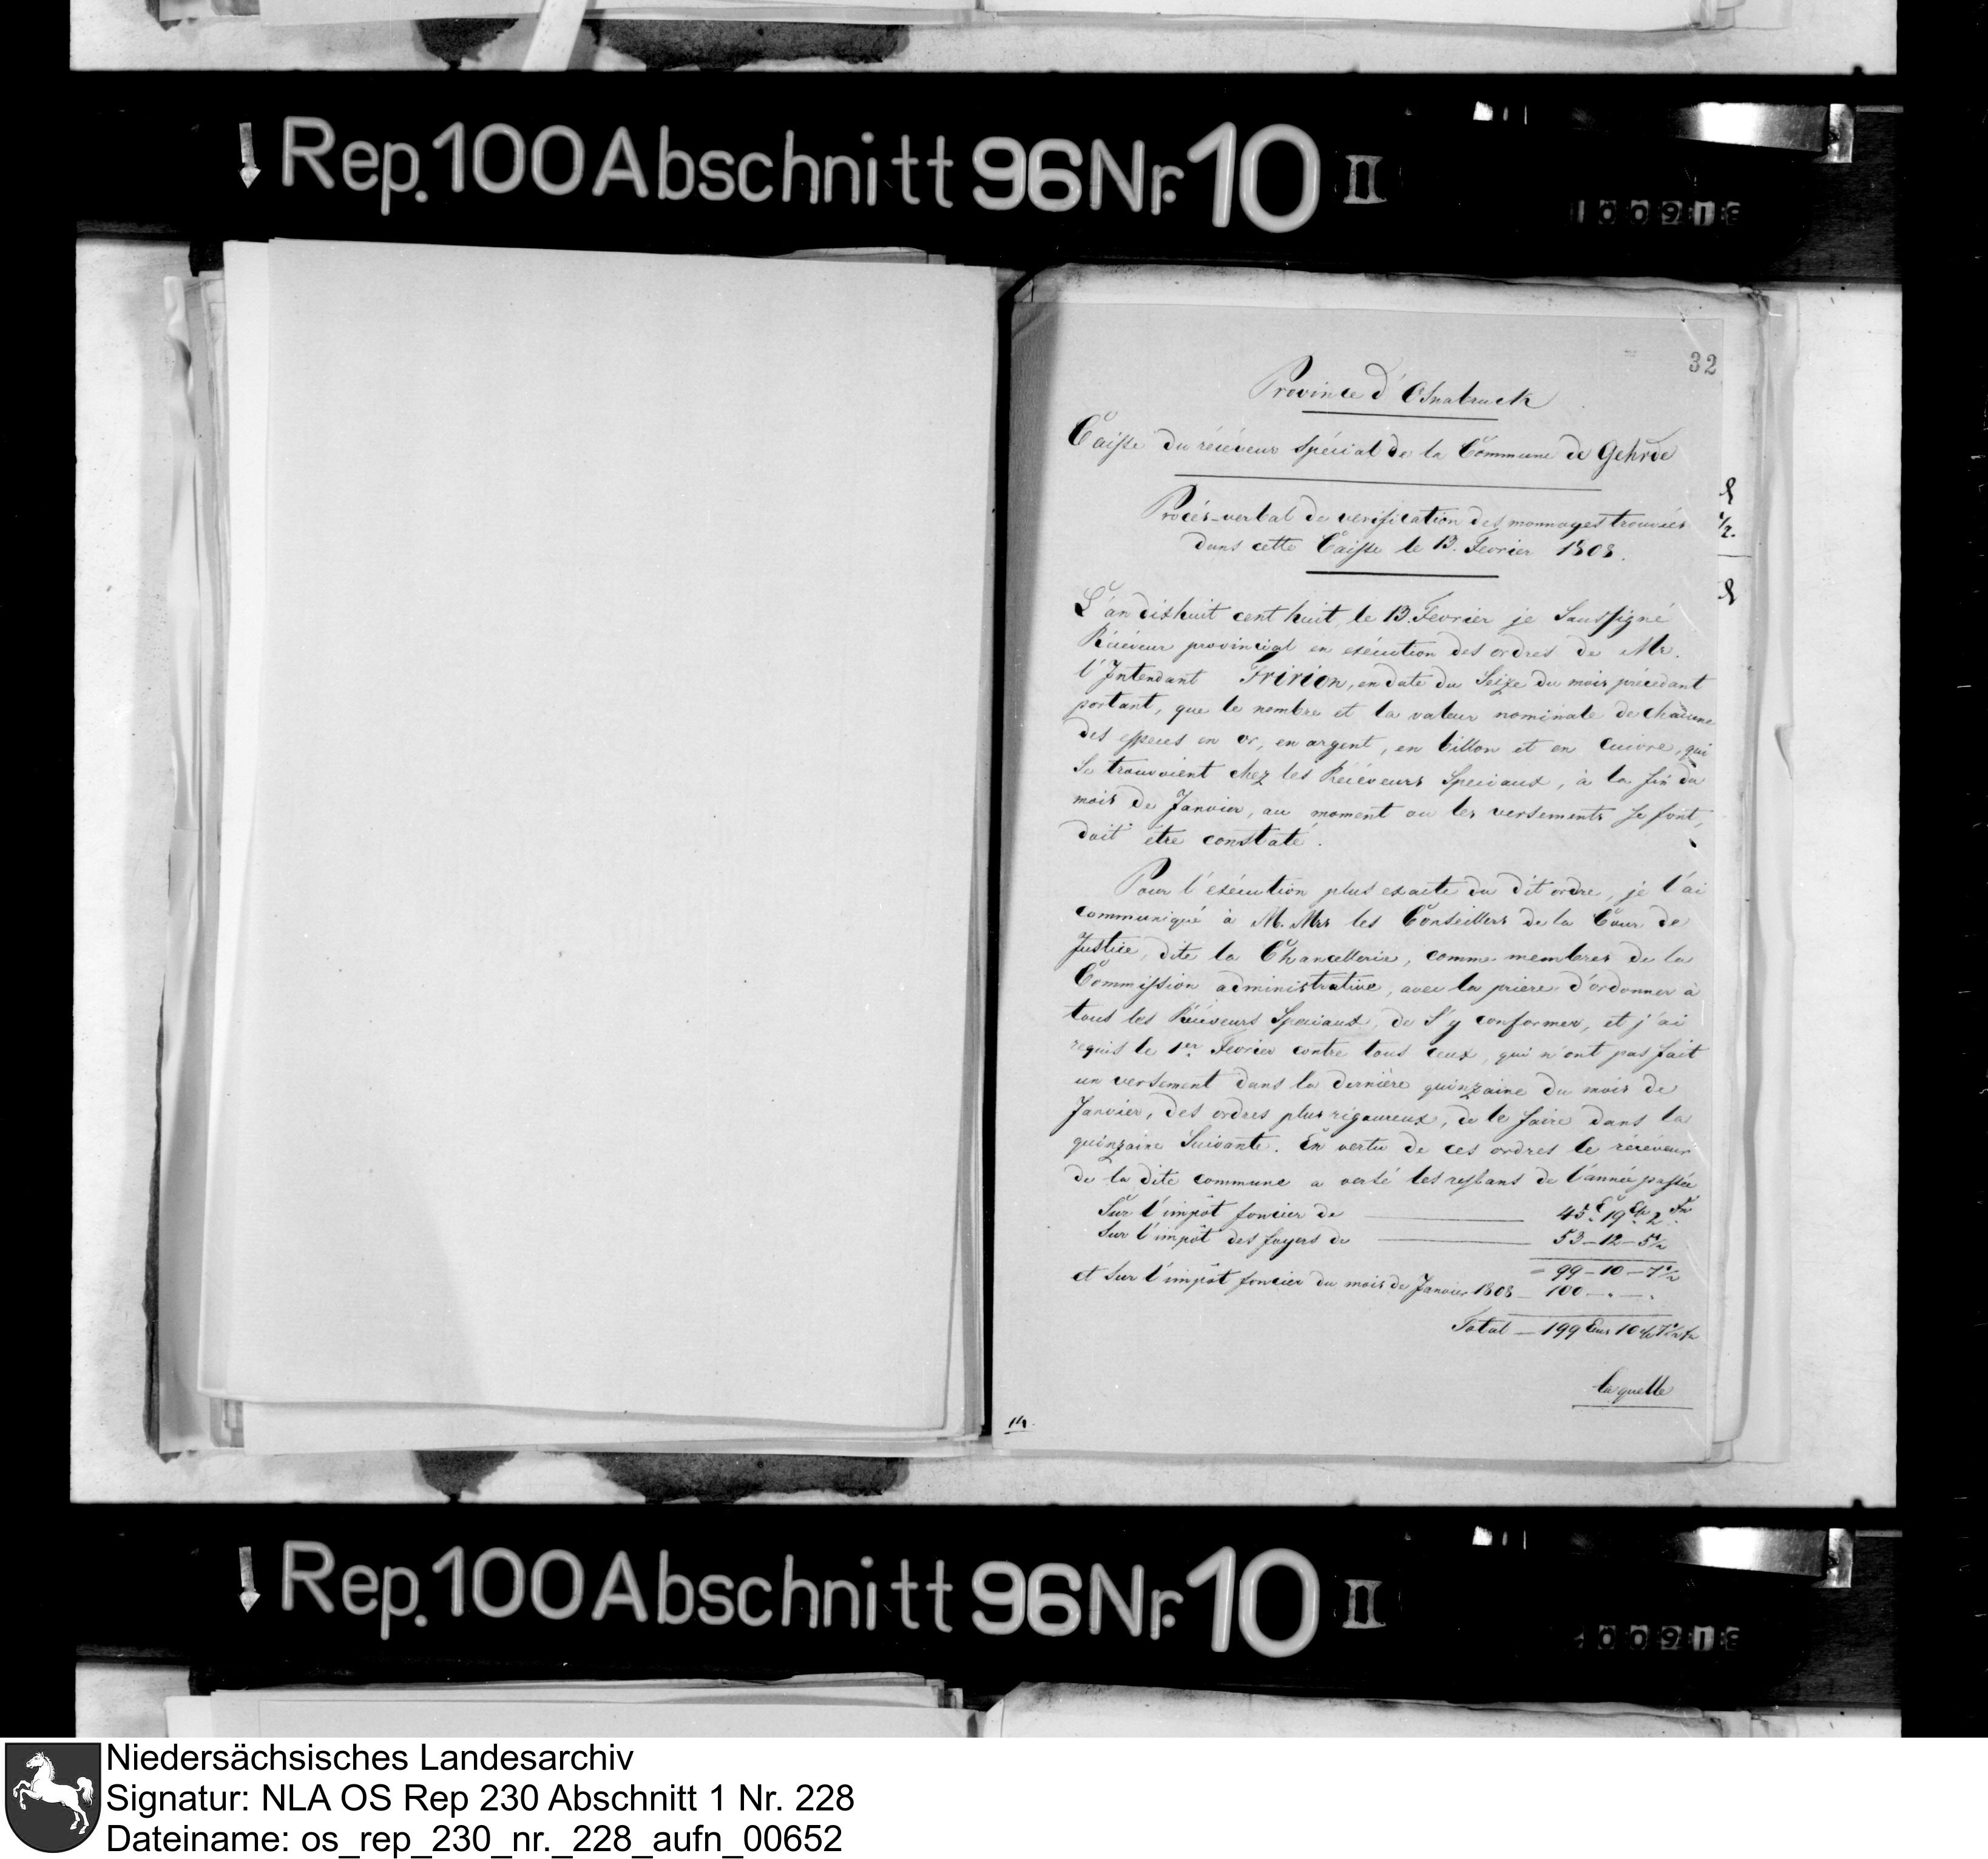 Rep. 100 Abschnitt 96 Nr. 10 II
32
Province d'Osnabruck
Caisse du récéveur spécial de la Commune de Gehrde
Procés-verbal de verification des monnoyes trouvées
dans cette Caisse le 13. Fevrier 1808.
L'an dixhuit cent huit, le 13. Fevrier je Soussigné
Récéveur provincial en exécution des ordres de Mr.
l'Intendant Fririon, en date du Seize du mois précédant
portant, que le nombre et la valeur nominale de chacune
des especes en or, en argent, en billon et en cuivre, qui
se trouvoient chez les Récéveurs Speciaux, à la fin du
mois de Janvier, au moment ou les versements se font,
doit être constaté.
Pour l'exécution plus exacte du dit ordre, je l'ai
communiqué à M. Mrs les Conseillers de la Cour de
Justice, dite la Chancellerie, comme membres de la
Commission administrative, avec la priere d'ordonner à
tous les Récéveurs Speciaux, de s'y conformer, et j'ai
requis le 1er Fevrier contre tous ceux, qui n'ont pas fait
un versement dans la dernière quinzaine du mois de
Janvier, des ordres plus rigoureux, de le faire dans la
quinzaine Suivante. En vertu de ces ordres le récéveur
de la dite commune a versé les restans de l'année passée
Sur l'impôt foncier de 45 19 2
Sur l'impôt des foyers de 53-12-5½
= 99-10-7½
et Sur l'impôt foncier du mois de Janvier 1808 - 100 -.-.
Total - 199 Ecus 10 7½
laquelle
14.
Rep. 100 Abschnitt 96 Nr. 10 II
Niedersächsisches Landesarchiv
Signatur: NLA OS Rep 230 Abschnitt 1 Nr. 228
Dateiname: os_rep_230_nr._228_aufn_00652